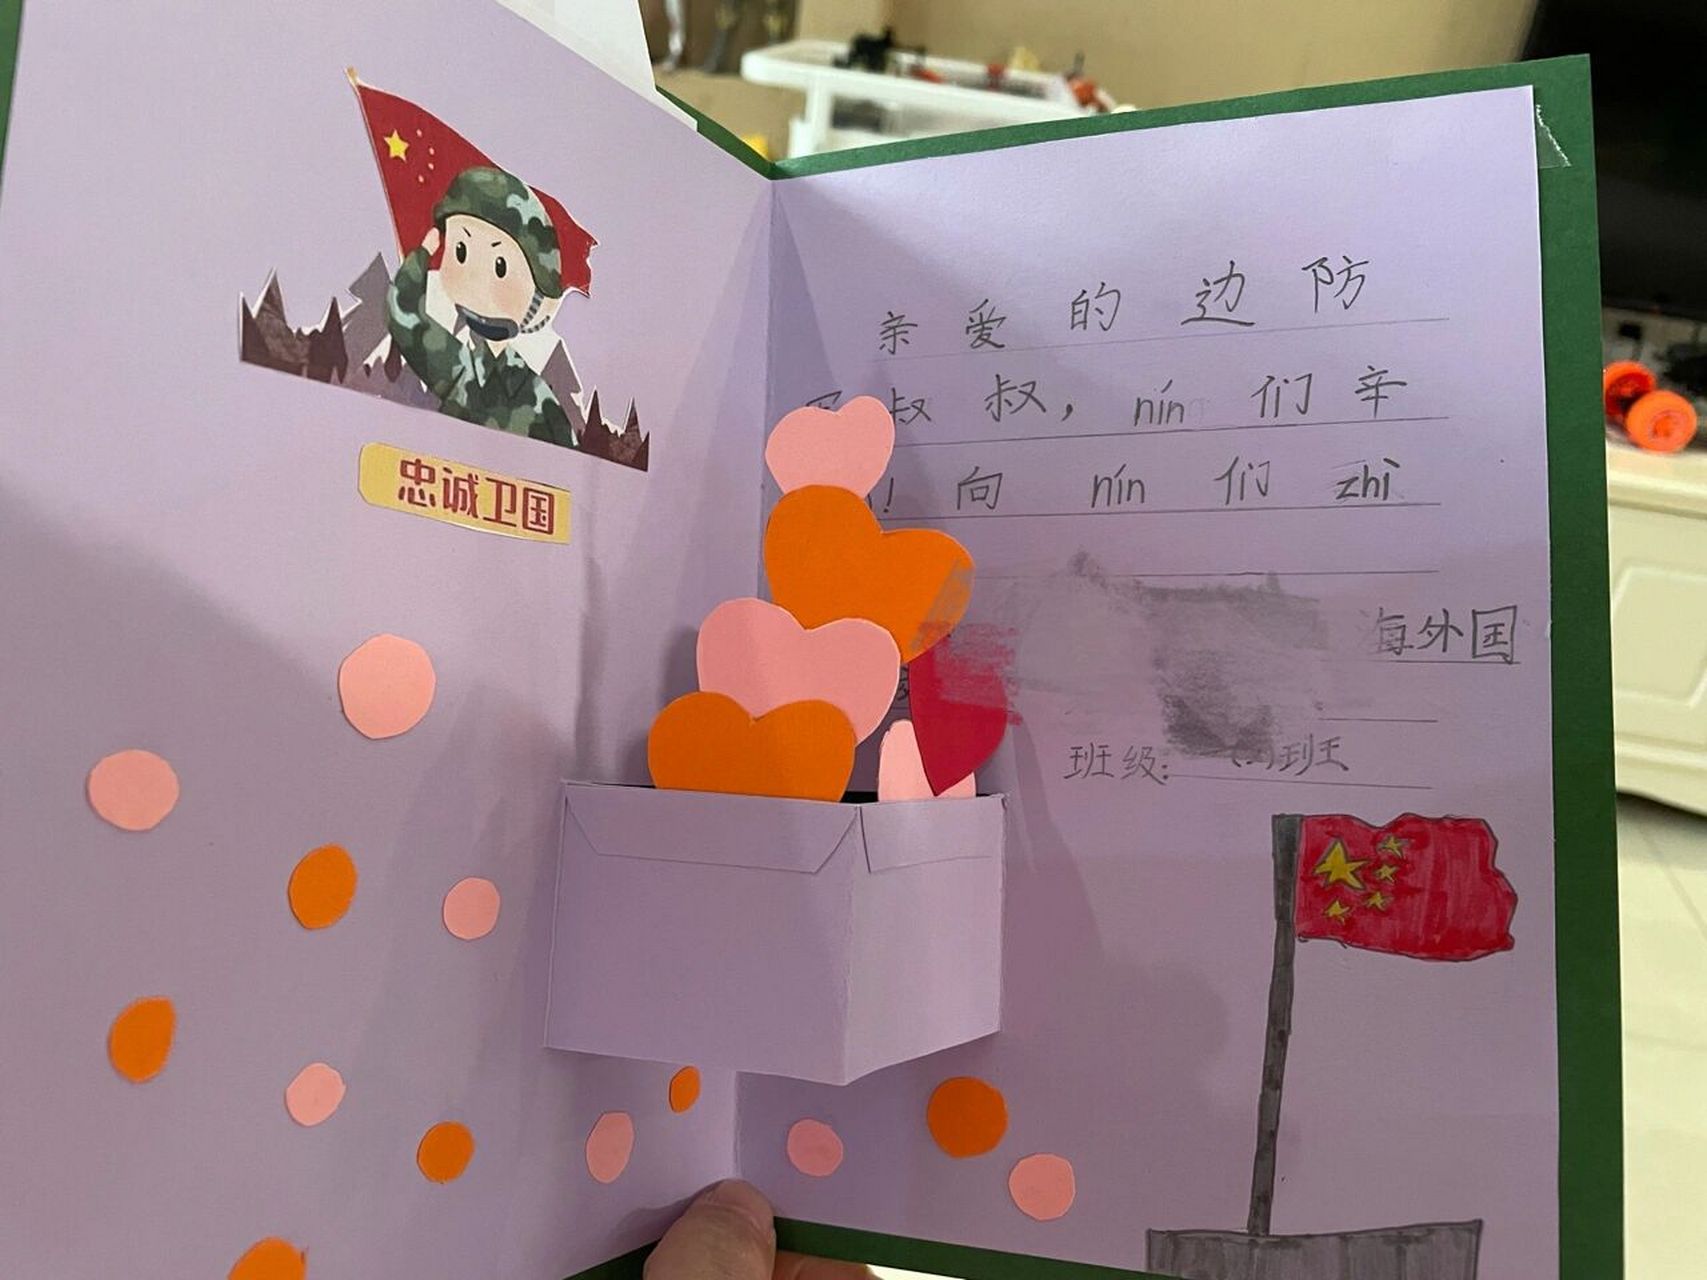 忠诚卫国
亲爱的边防
军叔叔，nín们辛
！向nín们zhì
海外国
班级：(2)班